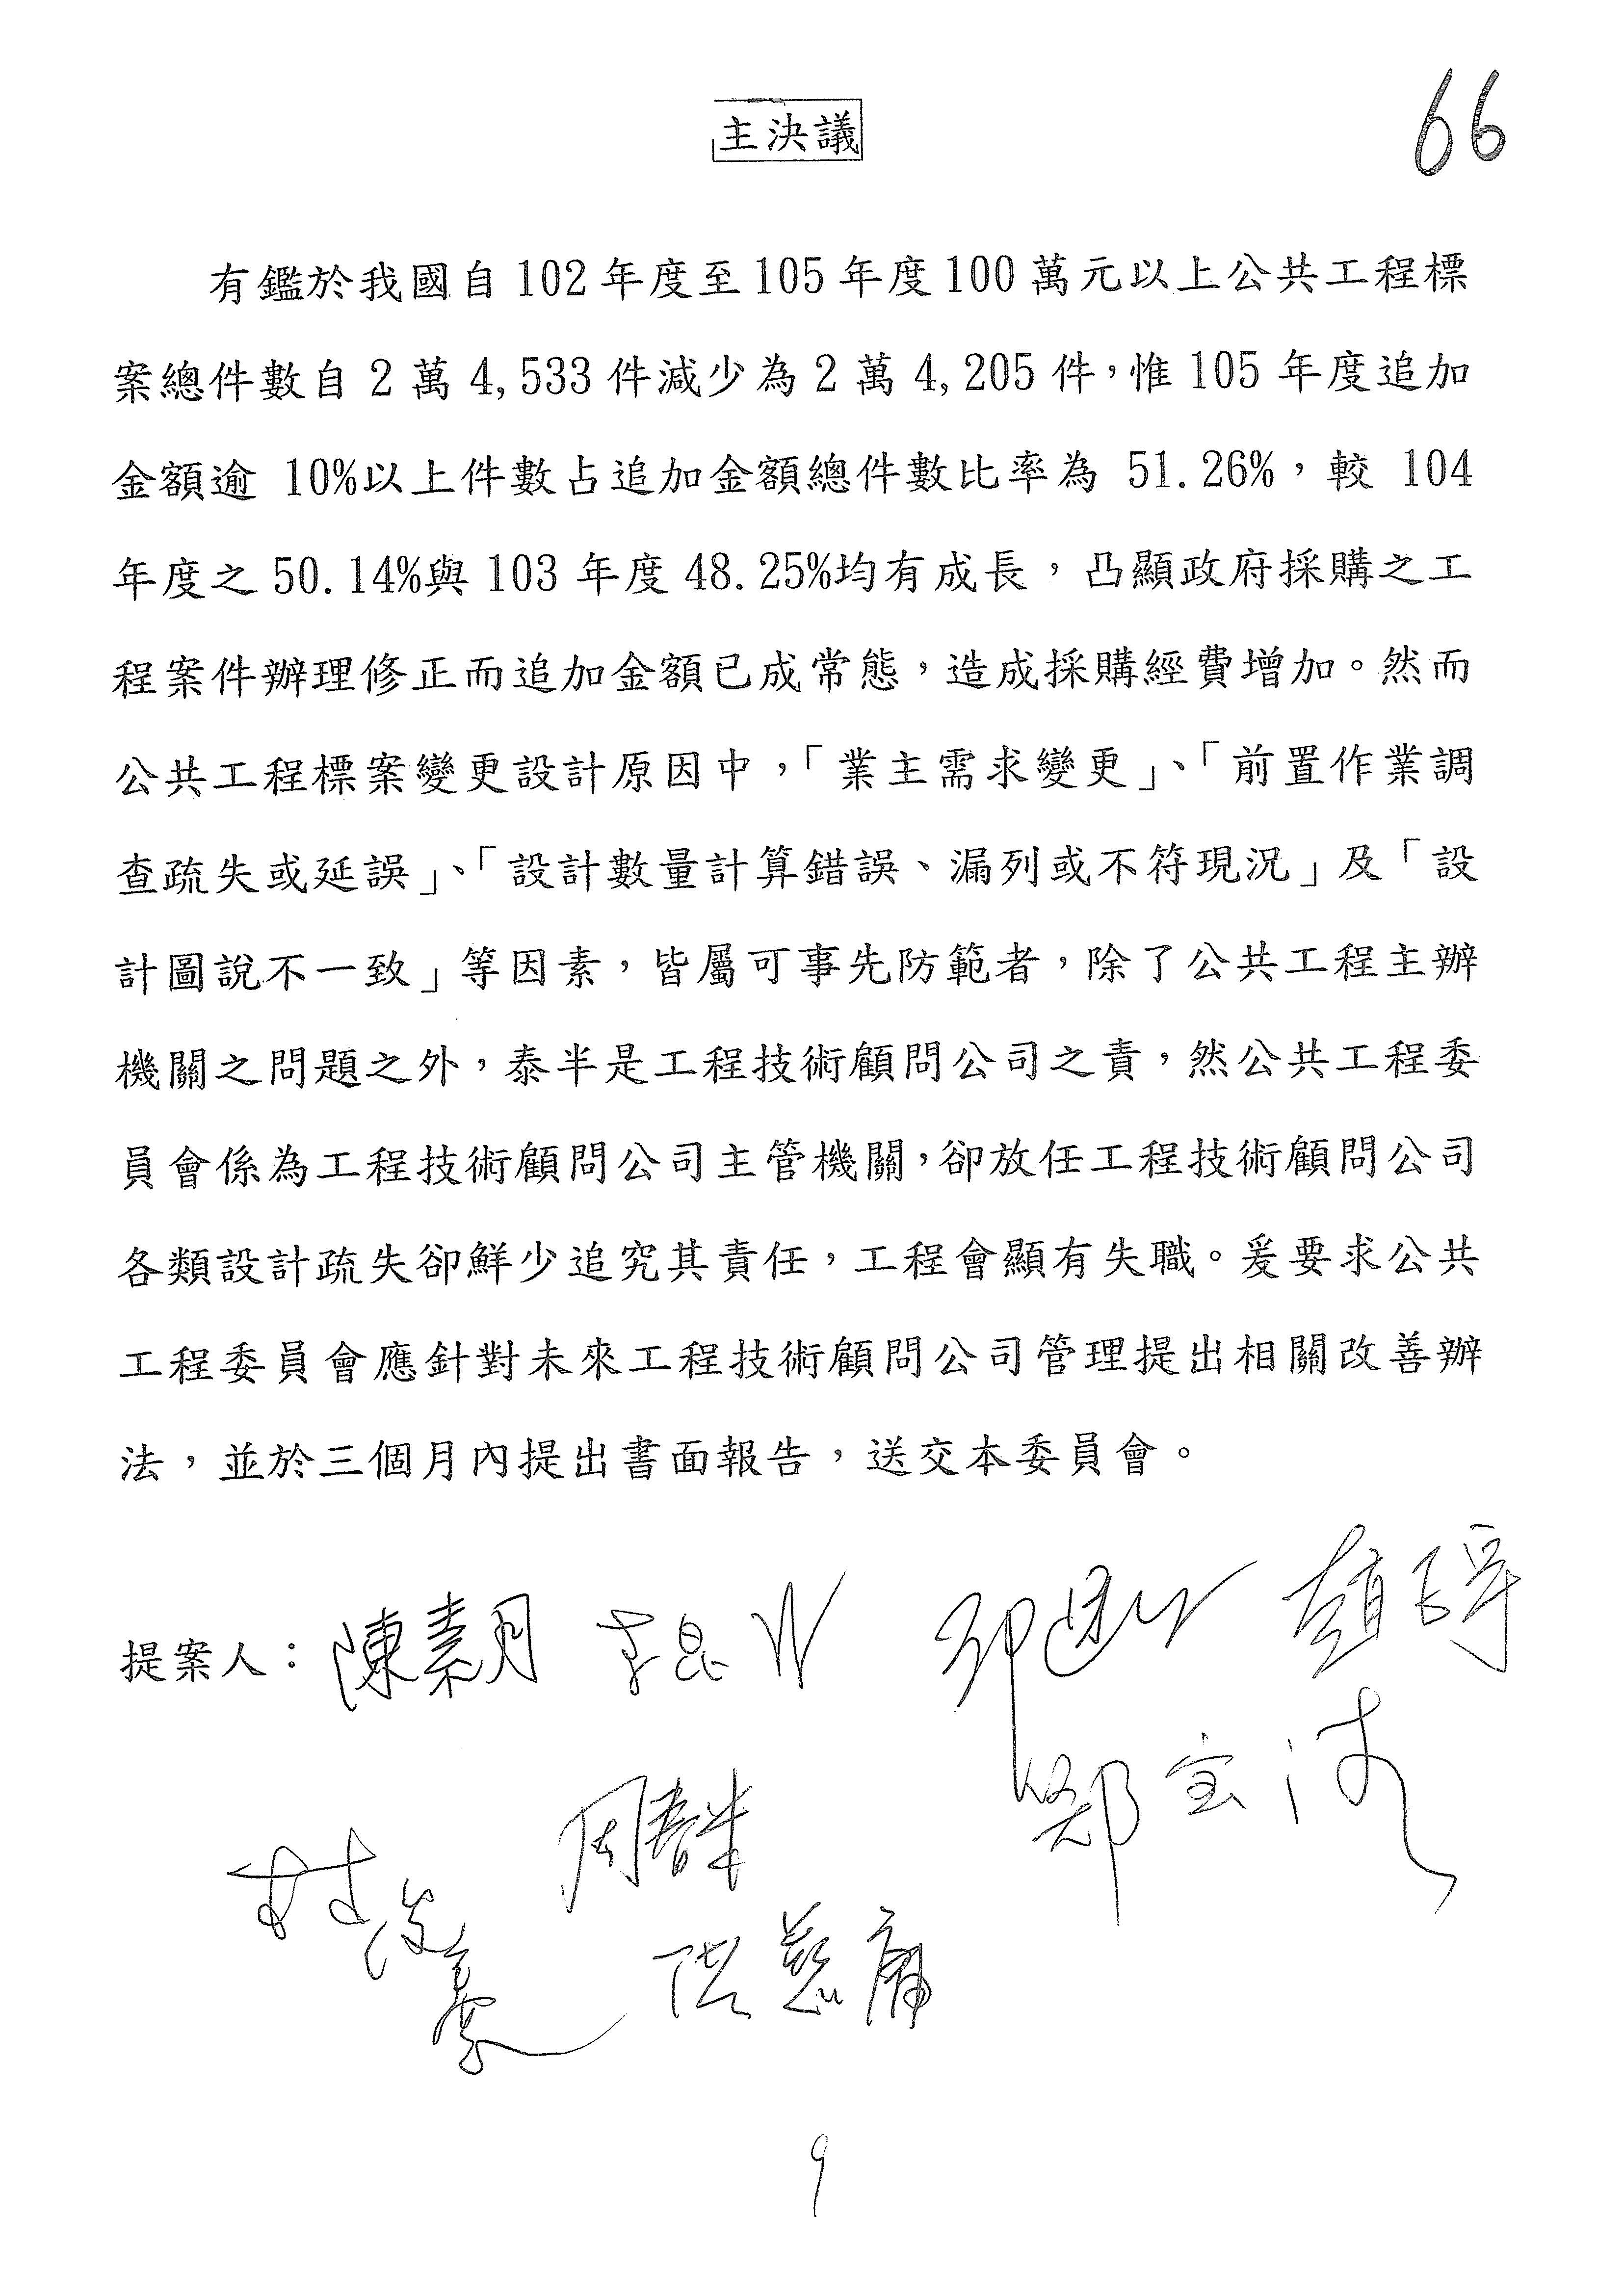 主決議
66
有鑑於我國自 102 年度至 105 年度 100 萬元以上公共工程標
案總件數自 2 萬 4,533 件減少為 2 萬 4,205 件，惟 105 年度追加
金額逾 10%以上件數占追加金額總件數比率為 51.26%，較 104
年度之 50.14%與 103 年度 48.25%均有成長，凸顯政府採購之工
程案件辦理修正而追加金額已成常態，造成採購經費增加。然而
公共工程標案變更設計原因中，「業主需求變更」、「前置作業調
查疏失或延誤」、「設計數量計算錯誤、漏列或不符現況」及「設
計圖說不一致」等因素，皆屬可事先防範者，除了公共工程主辦
機關之問題之外，泰半是工程技術顧問公司之責，然公共工程委
員會係為工程技術顧問公司主管機關，卻放任工程技術顧問公司
各類設計疏失卻鮮少追究其責任，工程會顯有失職。爰要求公共
工程委員會應針對未來工程技術顧問公司管理提出相關改善辦
法，並於三個月內提出書面報告，送交本委員會。
提案人：陳素月 李昆澤
鄭宝清
周春米
林俊憲
洪慈庸
9